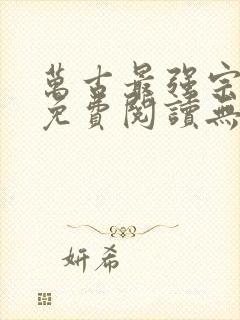 萬古最強宗
免費閱讀無
妍希